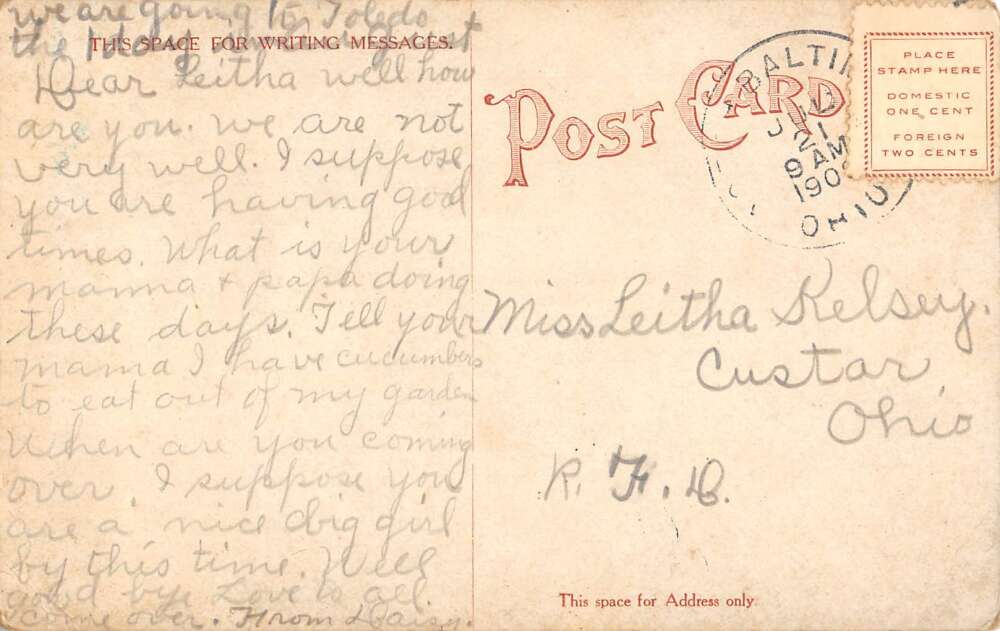 we are going to Toledo
the 1 day
THIS SPACE FOR WRITING MESSAGES.
Dear Leitha well how
are you. we are not
very well. I suppose
you are having good
times. What is your
mamma + papa doing
these days. Tell your
mama I have cucumbers
to eat out of my garden
When are you coming
over. I suppose you
are a nice big girl
by this time. Well
good bye Love to all.
come over. From Daisy.
POST CARD
BALTI
21
9 AM
190
OHIO
PLACE
STAMP HERE
DOMESTIC
ONE CENT
FOREIGN
TWO CENTS
Miss Leitha Kelsey.
Custar
Ohio
R. F. D.
This space for Address only.